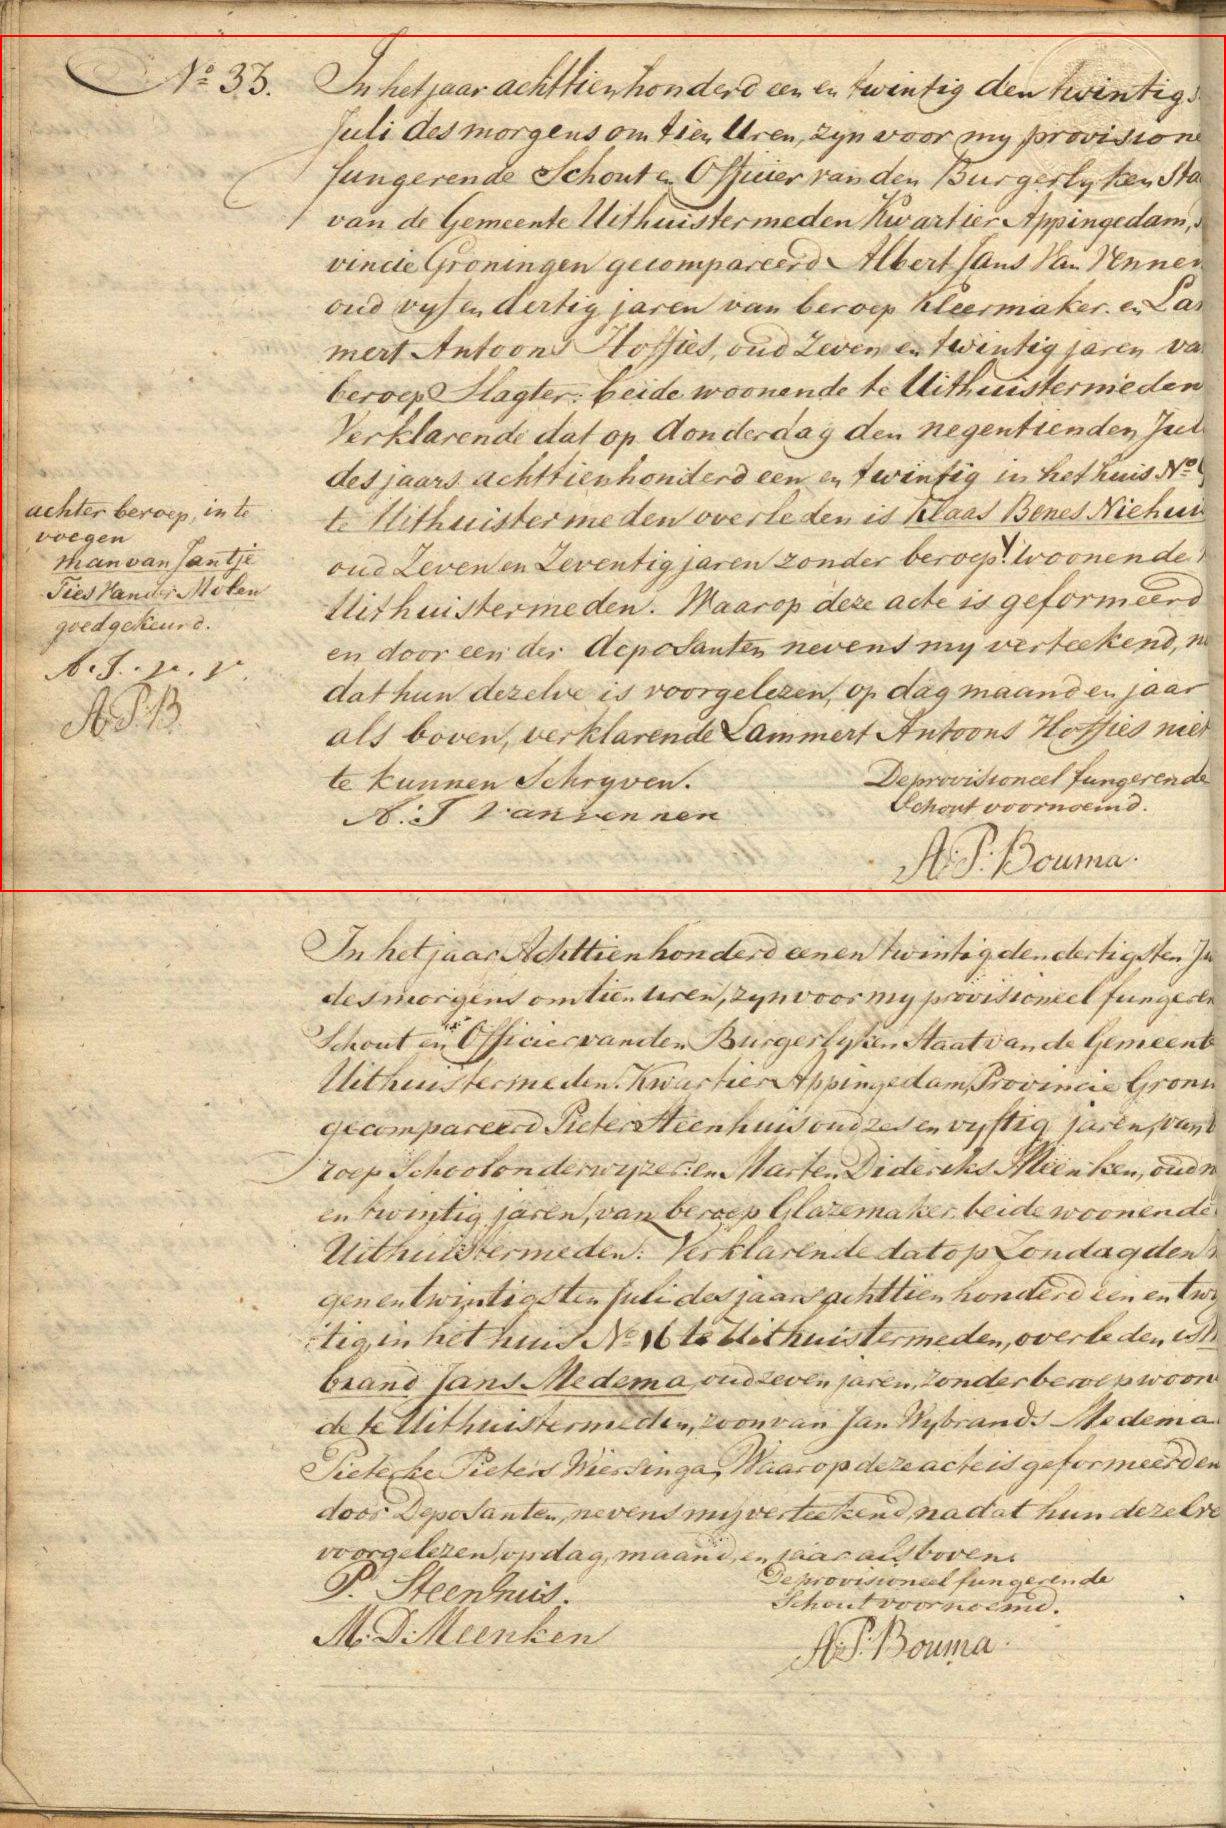 No 33.
In het jaar achttienhonderd een en twintig den twintigs
Juli des morgens om tien Uren, zyn voor my provisione
fungerende Schout en Officier van den Burgerlyken Sta
van de Gemeente Uithuistermeden Kwartier Appingedam,
vincie Groningen gecompareerd Albert Jans Van Vennen
oud vyf en dertig jaren van beroep Kleermaker. en Lam
mert Antoons Hoffies, oud Zeven en twintig jaren va
beroep Slagter. beide woonende te Uithuistermeden
Verklarende dat op donderdag den negentienden Jul
des jaars achttienhonderd een en twintig in het huis No
te Uithuistermeden overleden is Klaas Benes Niehui
oud Zeven en Zeventig jaren zonder beroep. Woonende
Uithuistermeden. Waarop deze acte is geformeerd
en door een der deposanten nevens my verteekend, n
dat hun dezelve is voorgelezen, op dag maand en jaar
als boven, verklarende Lammert Antoons Hoffies niet
te kunnen Schryven.
achter beroep, in te
voegen
man van Jantje
Ties Van der Molen
goedgekeurd.
A. J. v. V.
A P B
A. J van vennen
De provisioneel fungerende
Schout voornoemd.
A. P. Bouma.
In het jaar Achttienhonderd een en twintig den dertigsten Ju
des morgens om tien uren, zyn voor my provisioneel fungeren
Schout en Officier van den Burgerlyken Staat van de Gemeente
Uithuistermeden. Kwartier Appingedam, Provincie Gron
gecompareerd Pieter Steenhuis oud zes en vyftig jaren, van b
roep Schoolonderwyzer: en Marten Dideriks Meenken, oud n
en twintig jaren, van beroep Glazemaker. beide woonende
Uithuistermeden: Verklarende dat op Zondag den
gen en twintigsten Juli des jaars achttien honderd een en twi
tig, in het huis No 16 te Uithuistermeden, overleden is
brand Jans Medema, oud zeven jaren, zonder beroep woon
de te Uithuistermeden, zoon van Jan Wybrands Medema
Pieterke Pieters Wiersinga, Waarop deze acte is geformeerd en
door Deposanten, nevens my verteekend, nadat hun dezelve
voorgelezen, op dag, maand, en jaar als boven.
P. Steenhuis.
De provisioneel fungerende
Schout voornoemd.
M. D. Meenken
A. P. Bouma.